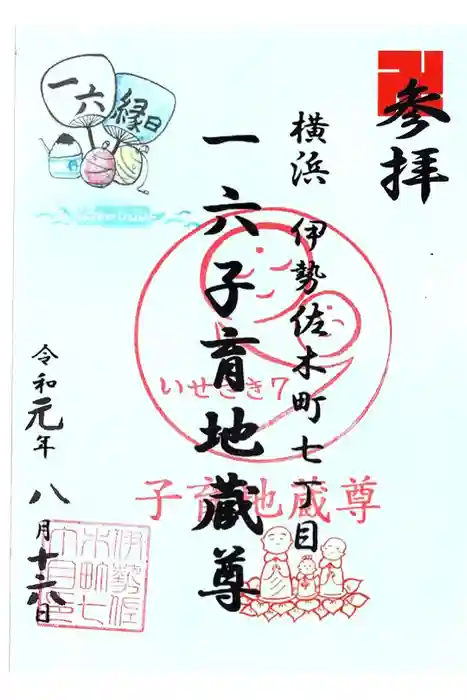 参拝
横浜 伊勢佐木町七丁目
一六子育地蔵尊
一六
縁日
いせざき7
子育地蔵尊
令和元年 八月十六日
伊勢佐
木町七